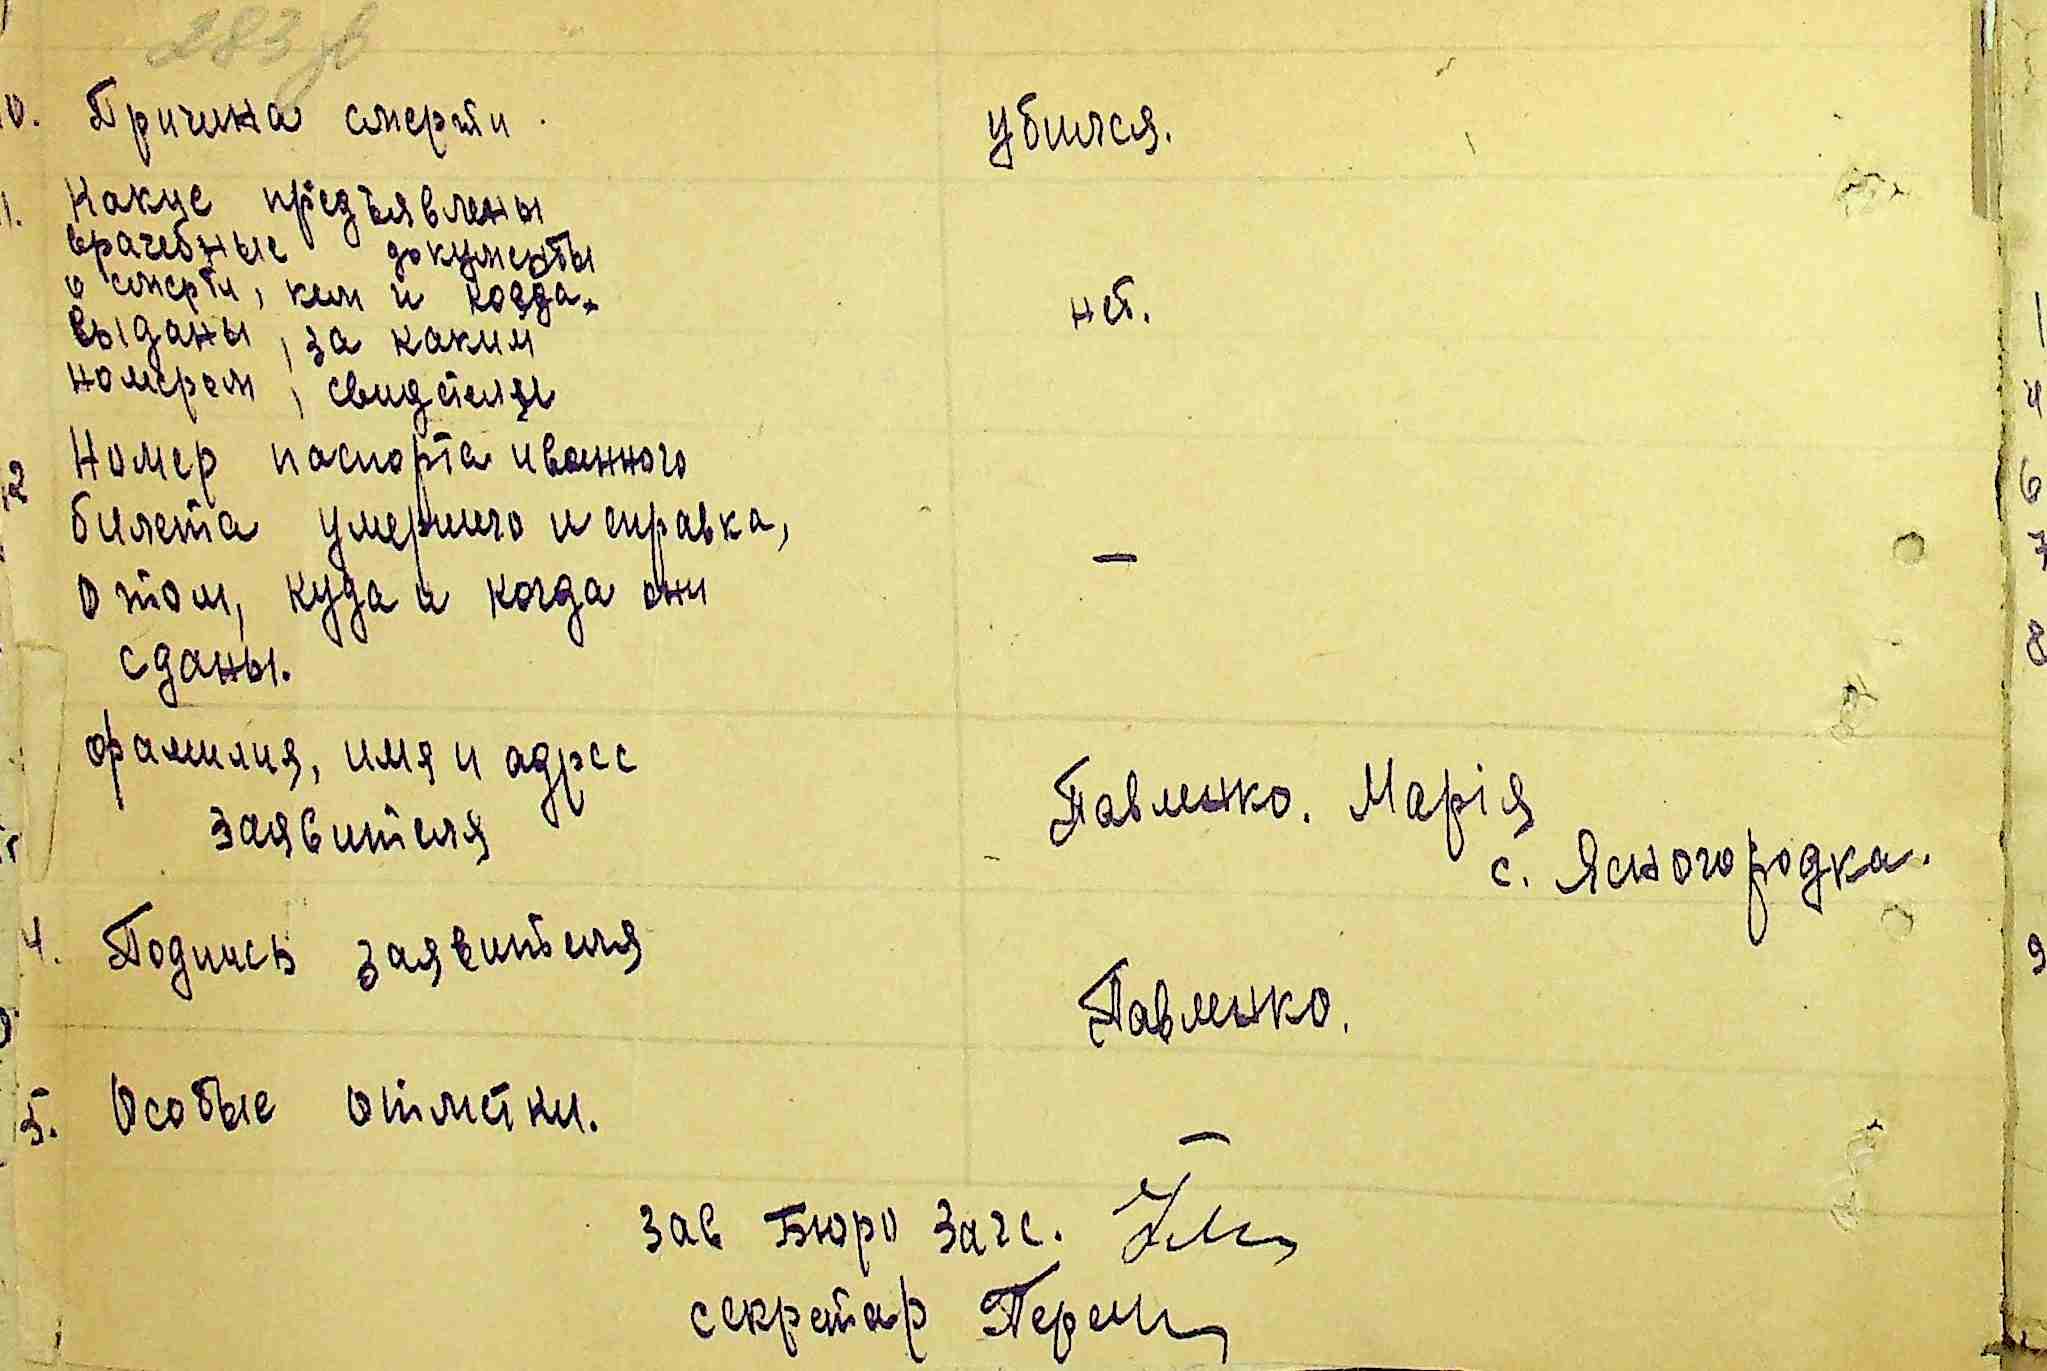 283 зв
10. Причина смерти убился.
11. Какие предъявлены
врачебные документы
о смерти, кем и когда
выданы, за каким нет.
номером, свидетели
12 Номер паспорта и военного
билета умершего и справка,
о том, куда и когда они —
сданы.
фамилия, имя и адрес
заявителя Павленко. Марія
с. Ясногородка.
4. Подпись заявителя
Павленко.
5. Особые отметки. —
Зав Бюро Загс.
секретар
1
4
6
7
8
9